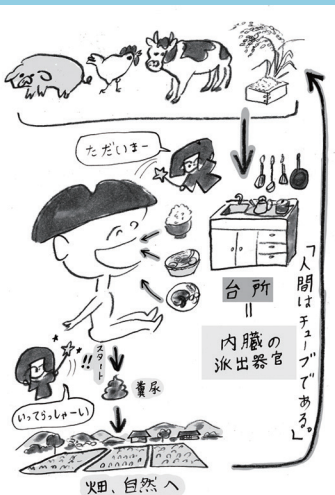 ただいまー
台所
＝
内臓の
派出器官
「人間はチューブである。」
スタート
!!
糞尿
いってらっしゃーい
畑、自然へ